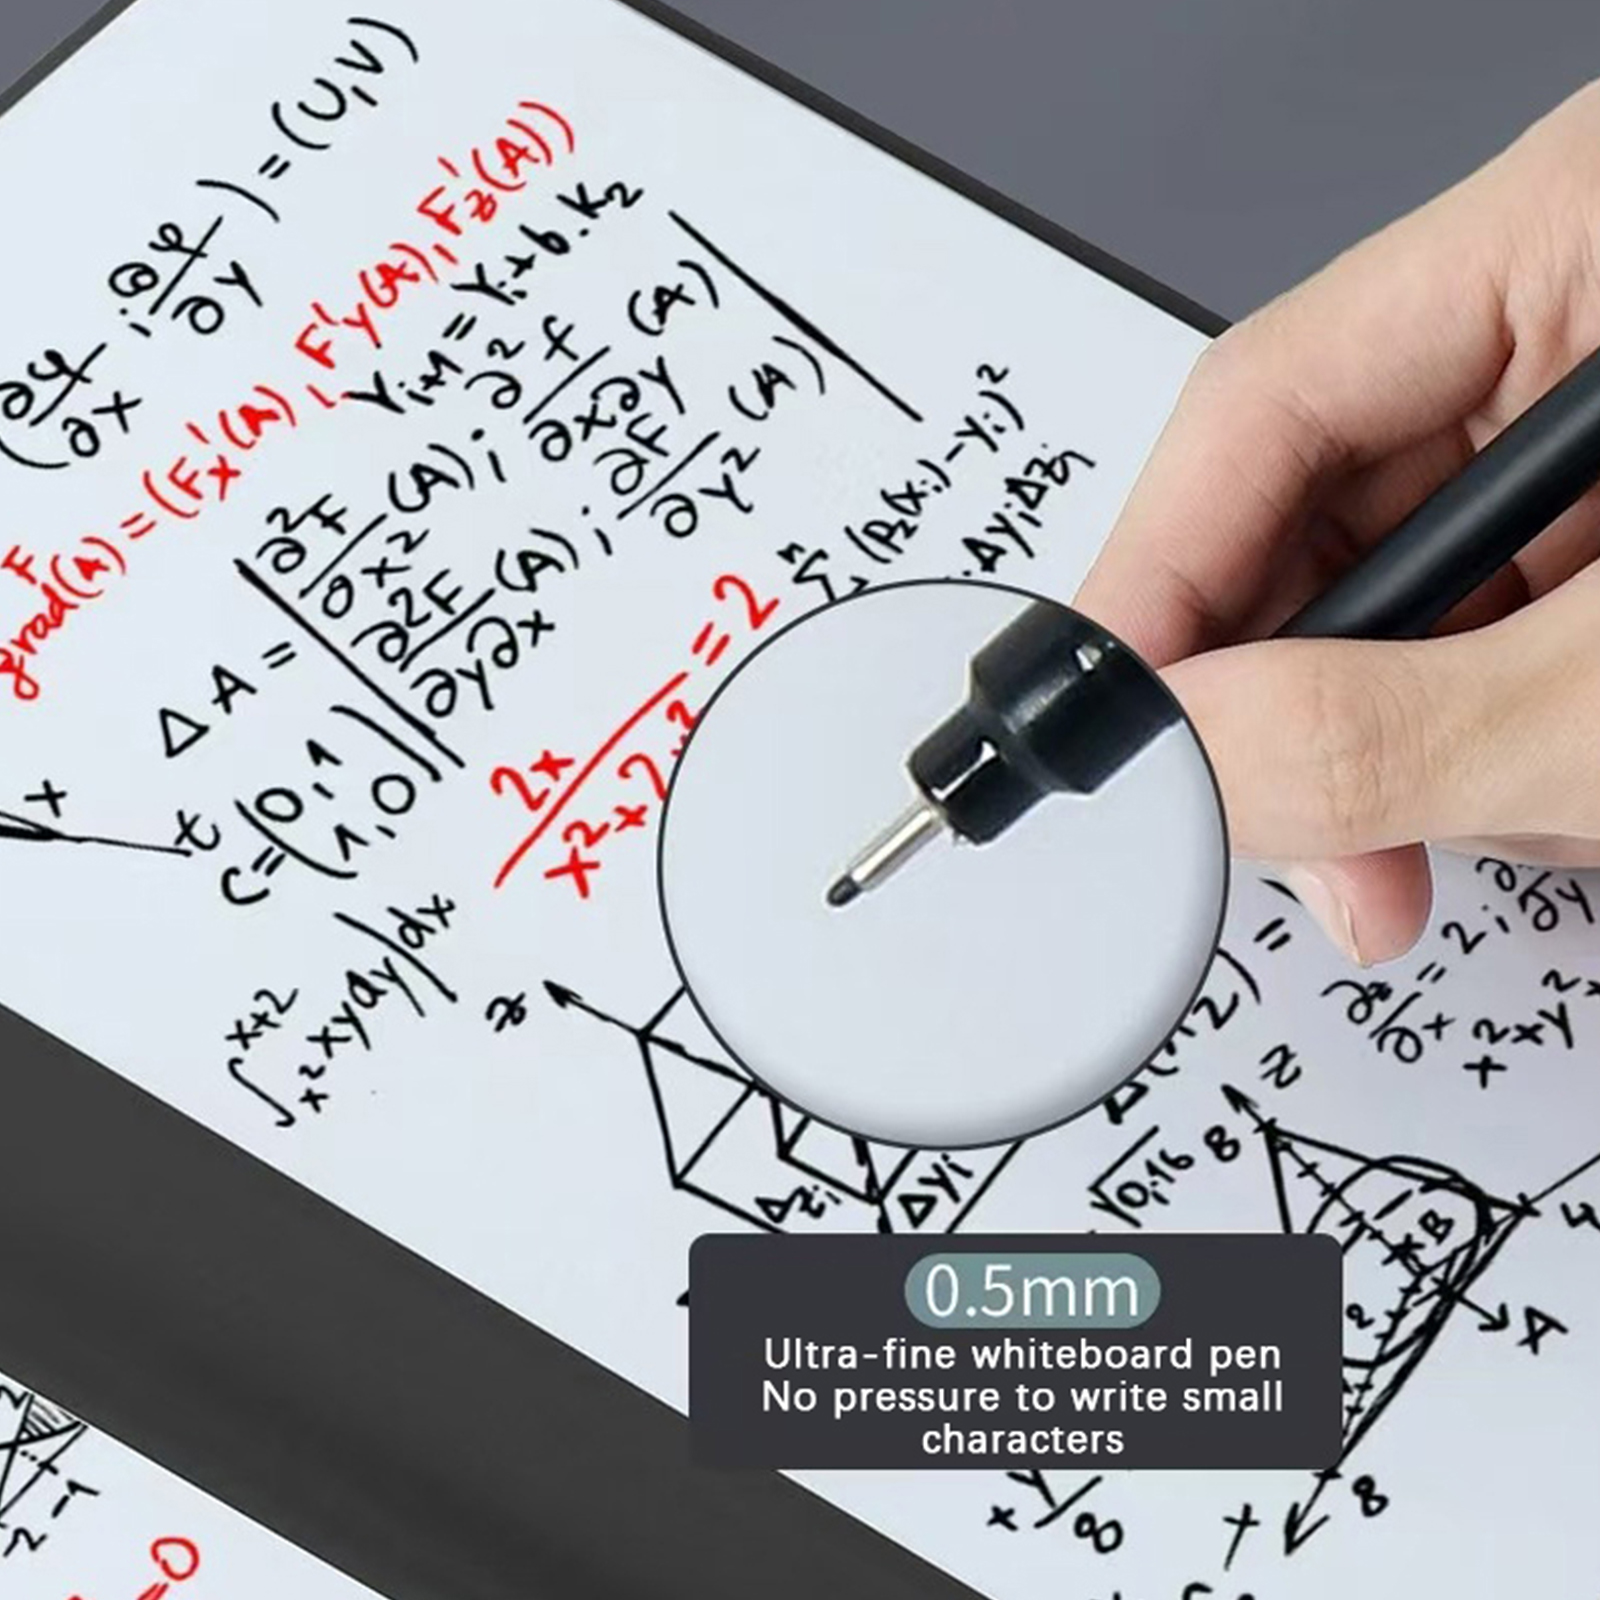 (∂φ/∂x ; ∂φ/∂y) = (U,V)
F
grad(A) = (F'x(A), F'y(A), F'z(A))
Yi+1 = Yi + b.K2
ΔA = | ∂²F/∂x² (A) ; ∂²f/∂x∂y (A)
∂2F/∂y∂x (A) ; ∂F/∂y² (A) |
x
t
C = (0,1)
(1,0)
2x / x²+2 = 2
(P2(xi)-yi)²
.Δyi Δzi
∫ x+2 x² xydy) dx
z
Δzi
Δyi
√0,16
∂z/∂x = 2 ; ∂/∂y
8
Z
B
2
A
8
+ Y/8
-1
=0
0.5mm
Ultra-fine whiteboard pen
No pressure to write small
characters